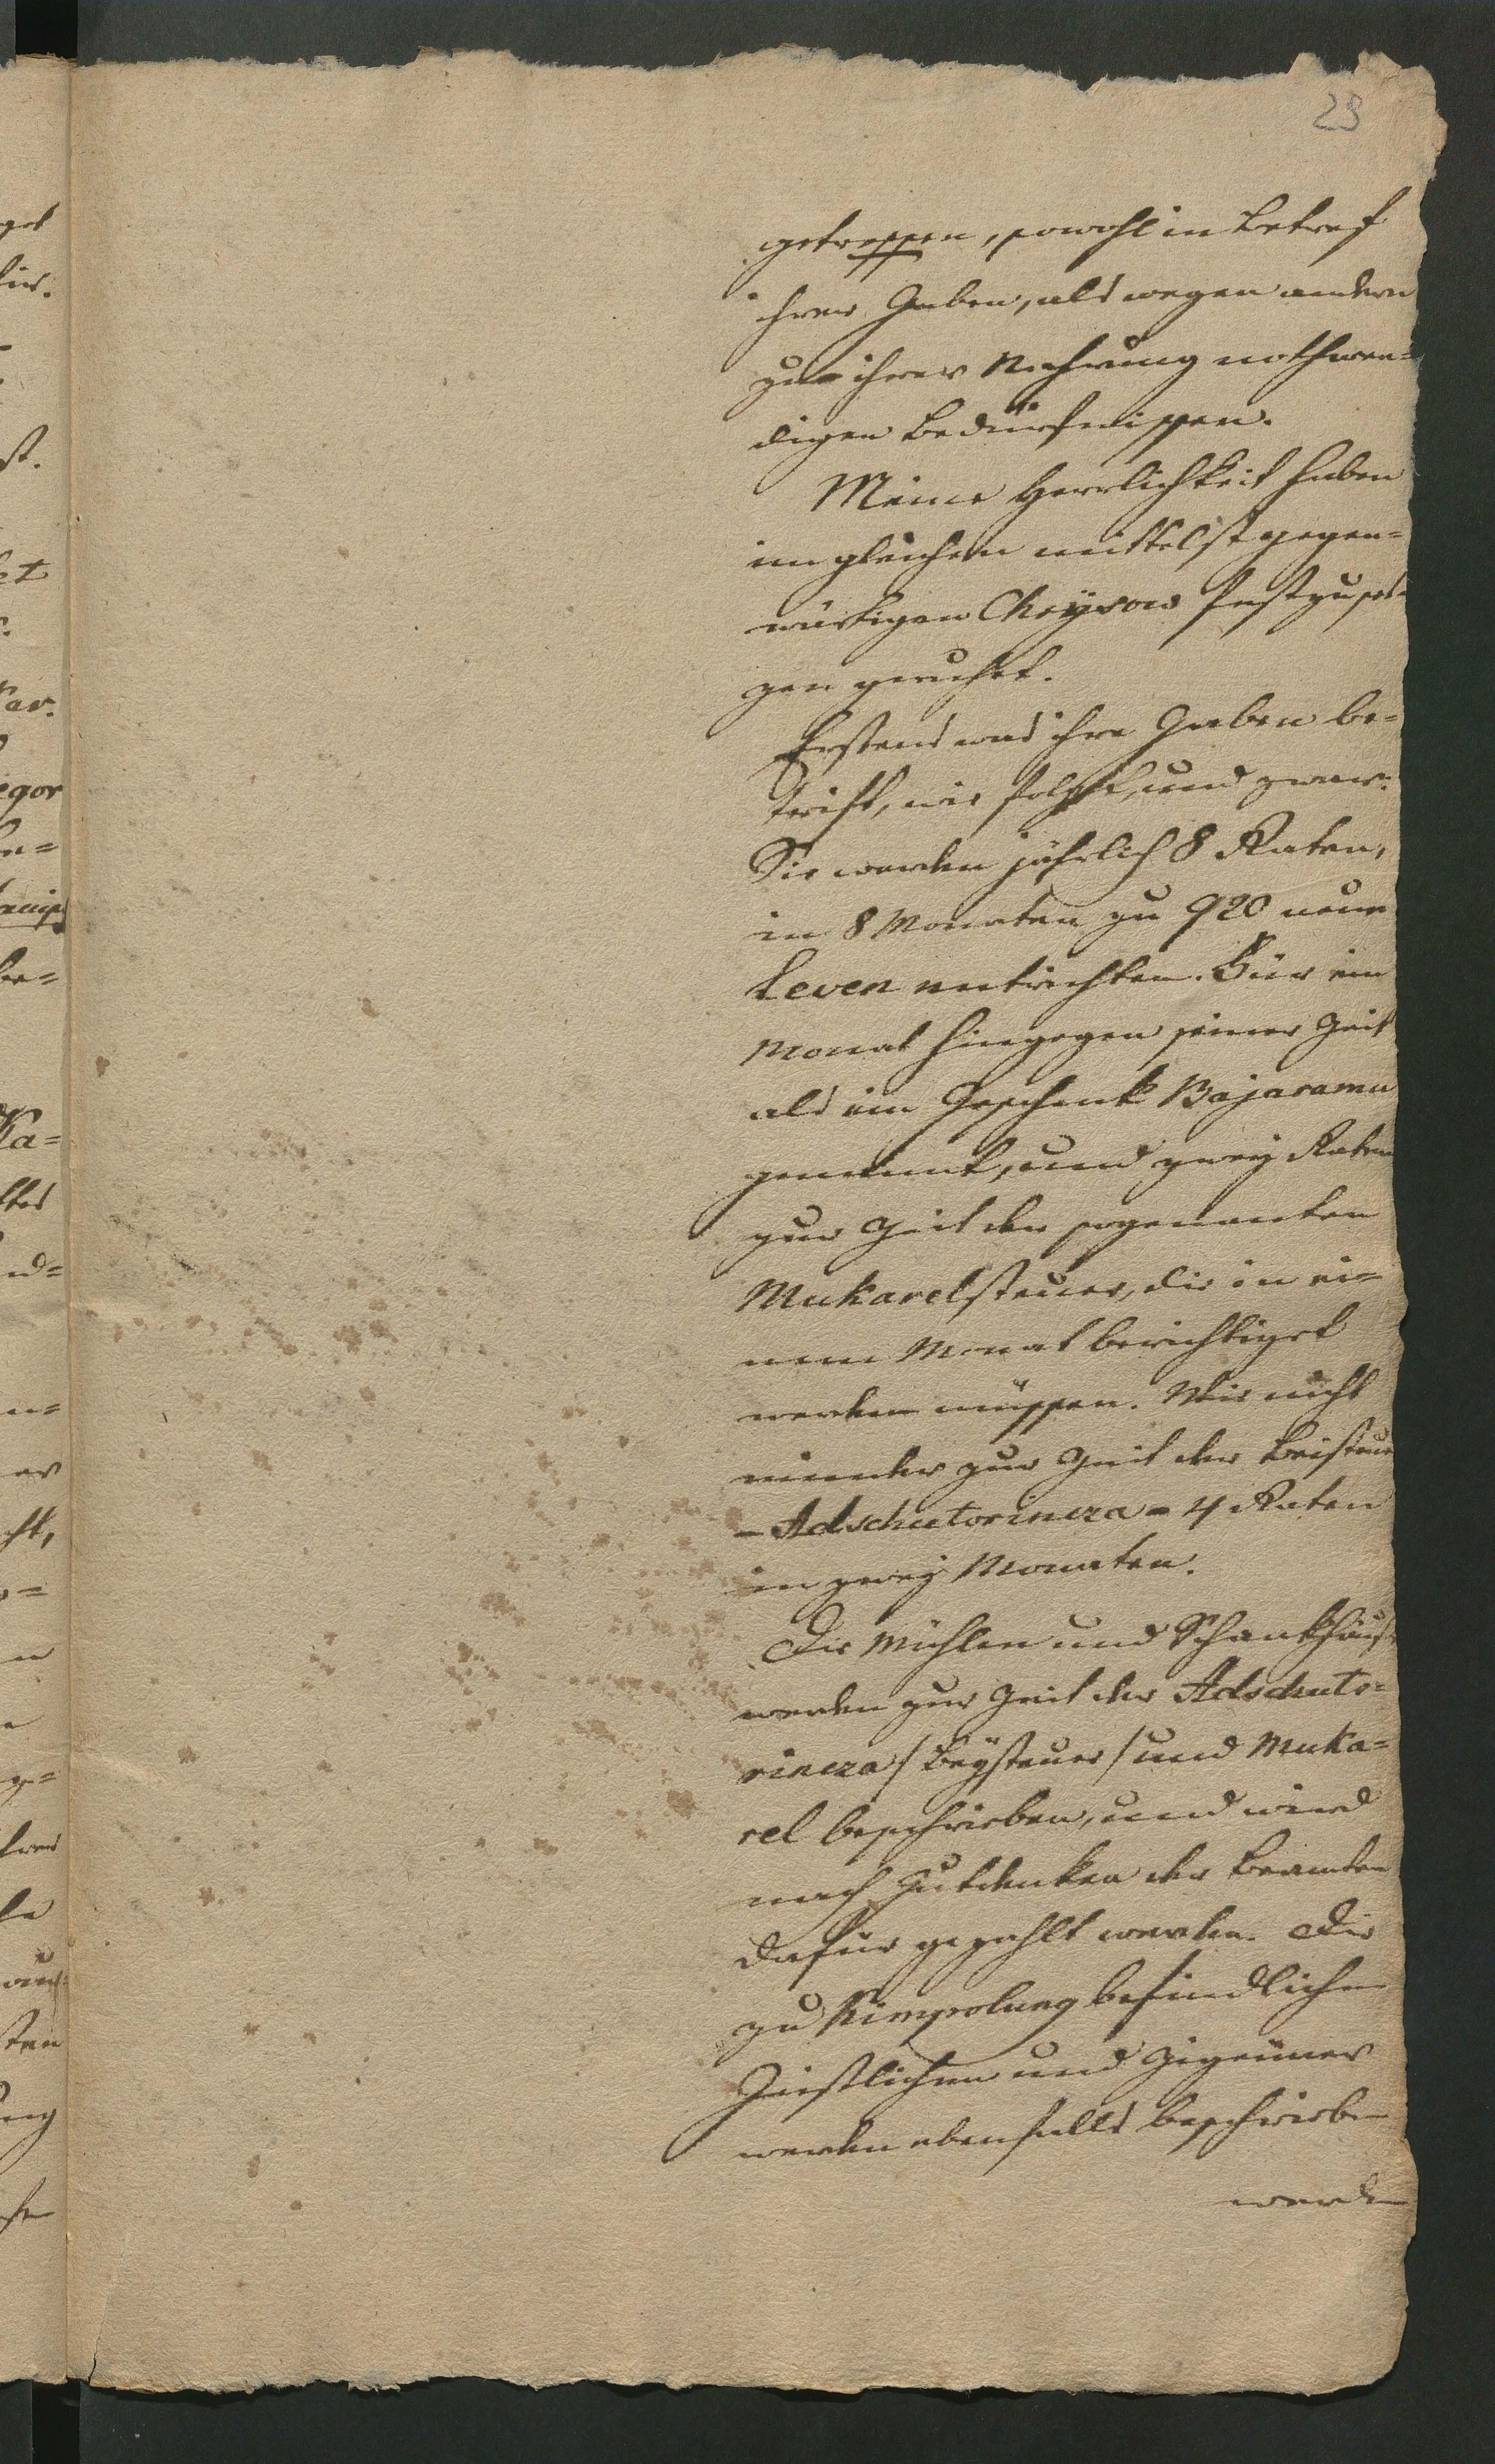 23
getroffen, sowohl in Betref
ihrer Gaben, als wegen andern
zu ihrer Nahrung nothwen=
digen Bedürfnissen.
Meine Herrlichkeit haben
imgleichen mittelst gegen=
wärtigen Chrysow festzuset=
zen geruhet.
Erstens was ihre Gaben be=
trift, wie folgt, und zwar:
Sie werden jährlich 8 Raten,
in 8 Monaten zu 920 neue
Leven entrichten. Für ein
Monat hingegen seiner Zeit
als ein Geschenk Bajaramu
genannt, und zwey Raten
zur Zeit der sogenanten
Mukarelsteuer, die in ei=
nem Monat berichtiget
werden müssen. Wie nicht
minder zur Zeit der Beisteuer
– Adschutorincza – 4 Raten
in zwey Monaten.
Die Mühlen und Schankhäus
werden zur Zeit der Adschuto=
rincza /Beysteuer/ und Muka=
rel beschrieben, und wird
nach Gutdenken der Beamten
dafür gezahlt werden. Die
zu Kimpolung befindlichen
Geistlichen und Zigeuner
werden ebenfalls beschrieben
werden